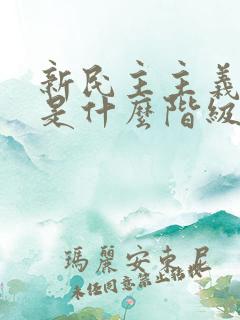 新民主主義
是什麼階級
瑪麗安東尼
未經同意禁止轉載